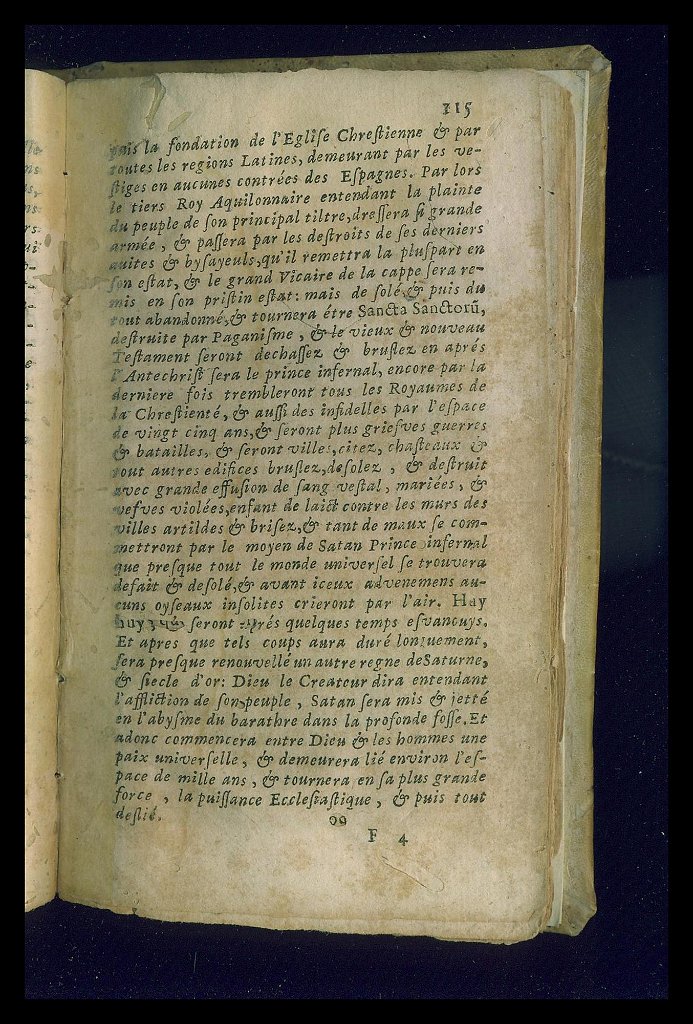 115
puis la fondation de l'Egliſe Chreſtienne & par
toutes les regions Latines, demeurant par les ve-
ſtiges en aucunes contrées des Eſpagnes. Par lors
le tiers Roy Aquilonnaire entendant la plainte
du peuple de ſon principal tiltre, dreſſera ſi grande
armée, & paſſera par les deſtroits de ſes derniers
auites & byſayeuls, qu'il remettra la pluſpart en
ſon eſtat, & le grand Vicaire de la cappe ſera re-
mis en ſon priſtin eſtat: mais deſolé, & puis du
tout abandonné, & tournera étre Sancta Sanctorũ,
deſtruite par Paganiſme, & le vieux & nouveau
Teſtament ſeront dechaſſez & bruſlez en aprés
l'Antechriſt ſera le prince infernal, encore par la
derniere fois trembleront tous les Royaumes de
la Chreſtienté, & auſſi des infidelles par l'eſpace
de vingt cinq ans, & ſeront plus grieſves guerres
& batailles, & ſeront villes, citez, chaſteaux &
tout autres edifices bruſlez, deſolez, & deſtruit
avec grande effuſion de ſang veſtal, mariées, &
vefves violées, enfant de laict contre les murs des
villes artildes & briſez, & tant de maux ſe com-
mettront par le moyen de Satan Prince infernal
que preſque tout le monde univerſel ſe trouvera
defait & deſolé, & avant iceux advenemens au-
cuns oyſeaux inſolites crieront par l'air. Hay
huy & ſeront aprés quelques temps eſvancuys.
Et apres que tels coups aura duré longuement,
ſera preſque renouvellé un autre regne de Saturne,
& ſiecle d'or: Dieu le Createur dira entendant
l'affliction de ſon peuple, Satan ſera mis & jetté
en l'abyſme du barathre dans la profonde foſſe. Et
adonc commencera entre Dieu & les hommes une
paix univerſelle, & demeurera lié environ l'eſ-
pace de mille ans, & tournera en ſa plus grande
force, la puiſſance Eccleſiaſtique, & puis tout
deſlié.
99
F 4